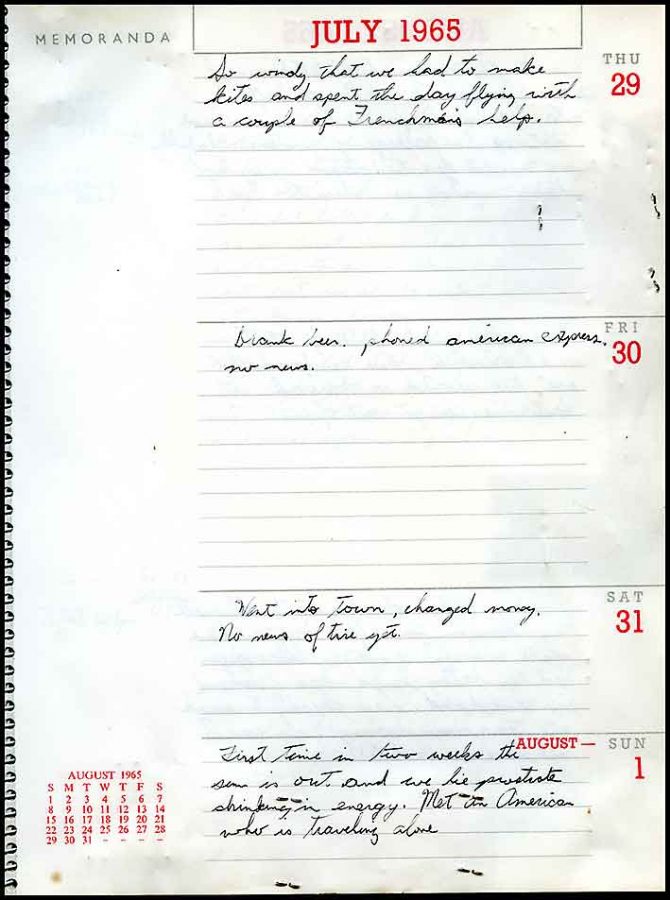 MEMORANDA
JULY 1965
THU
29
So windy that we had to make
kites and spent the day flying with
a couple of Frenchman's help.
FRI
30
Drank beer. phoned american express.
no news.
SAT
31
Went into town, changed money.
No news of tire yet.
AUGUST— SUN
1
First time in two weeks the
sun is out. and we lie prostrate
drinking in energy. Met an American
who is traveling alone
AUGUST 1965
S M T W T F S
1 2 3 4 5 6 7
8 9 10 11 12 13 14
15 16 17 18 19 20 21
22 23 24 25 26 27 28
29 30 31 – – – –